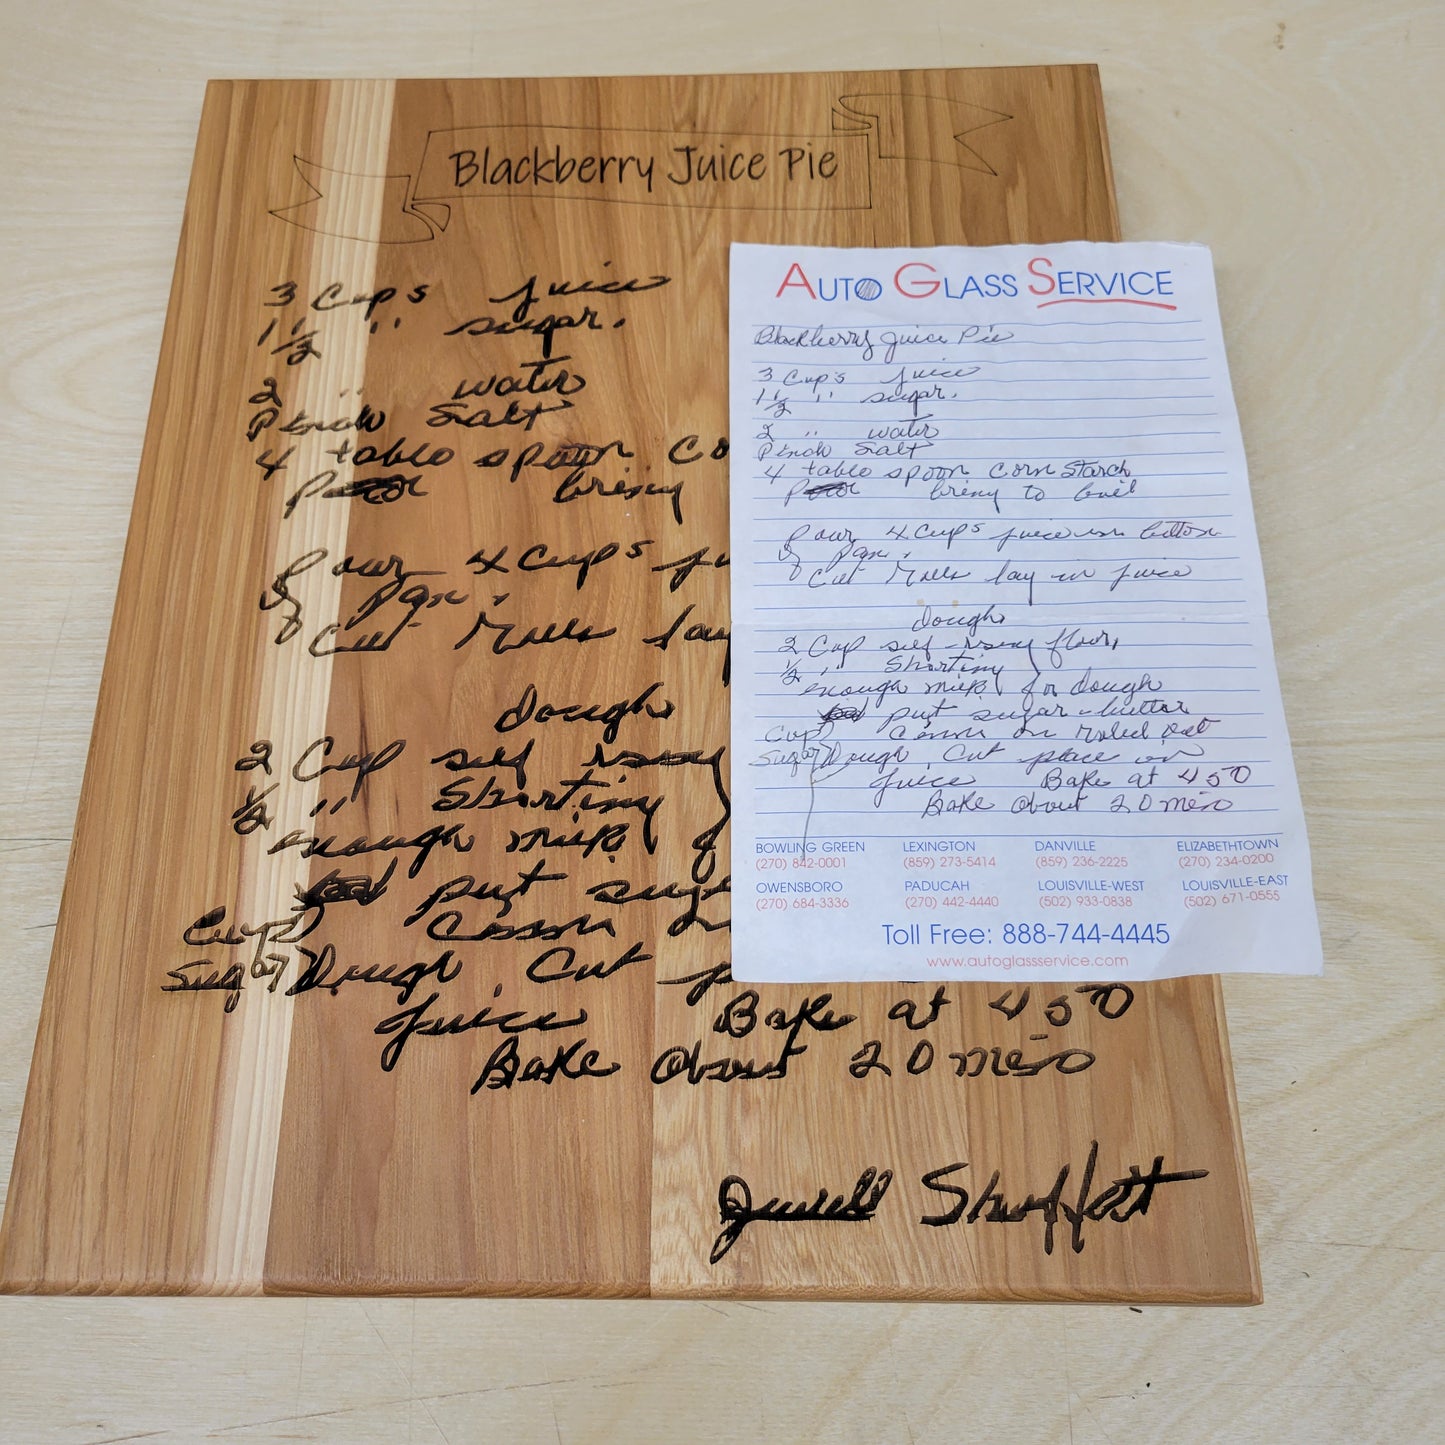 Blackberry Juice Pie
3 Cups juice
1 1/2 " sugar.
2 " water
Pinch Salt
4 table spoon Co
bring
Pour 4 Cups ju
of Pan.
Cut Rolls lay
dough
2 Cup self rising
1/2 " Shorting
enough milk f
put suga
Cup Cinnon
Sugar Dough, Cut p
juice Bake at 450
Bake about 20 min
Jewell Shuffett
AUTO GLASS SERVICE
Blackberry Juice Pie
3 Cups juice
1 1/2 " sugar.
2 " water
Pinch Salt
4 table spoon Corn Starch
bring to boil
Pour 4 Cups juice in bottom
of Pan.
Cut Rolls lay in juice
dough
2 Cup self rising flour,
1/2 " Shorting
enough milk for dough
put sugar - butter
Cup Cinnon on roled out
Sugar Dough, Cut place in
juice Bake at 450
Bake about 20 min
BOWLING GREEN LEXINGTON DANVILLE ELIZABETHTOWN
(270) 842-0001 (859) 273-5414 (859) 236-2225 (270) 234-0200
OWENSBORO PADUCAH LOUISVILLE-WEST LOUISVILLE-EAST
(270) 684-3336 (270) 442-4440 (502) 933-0838 (502) 671-0555
Toll Free: 888-744-4445
www.autoglassservice.com